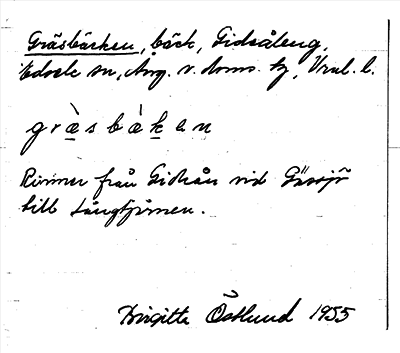 Gräsbäcken, bäck, Gidsåleng,
Edsele sn, Ång. v. doms. tg, Vnl. l.
gràsbàkan
Rinner från Gidsån vid Gåssjö
till Långtjärnen.
Birgitta Östlund 1955